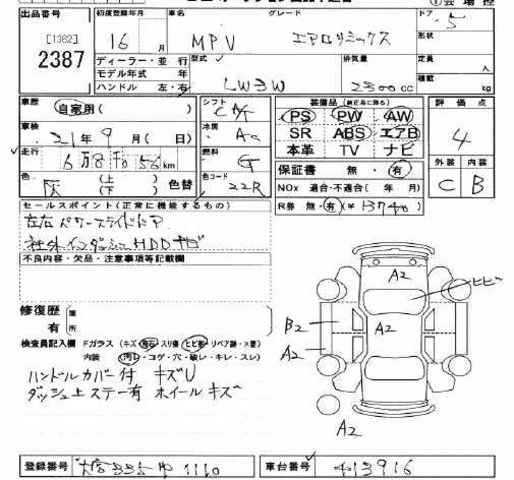 出品番号 初度登録年月 車名 グレード ドア 5
[1362] 16 月 MPV エアロリミックス 形状
2387 ディーラー・並行 型式 排気量 定員 人
モデル年式 年 積載 kg
ハンドル 左・右 LW3W 2300 cc
車歴 自家用( ) シフト C A/T 装備品(純正品に限る) 評価点
車検 21年9月( 日) 冷房 AC PS PW AW 4
SR ABS エアB
走行 6万8千056km 燃料 G 本革 TV ナビ 外装 内装
保証書 無・有 C B
色 (上) (下) 色替 色コード 22R NOx 適合・不適合( 年 月)
R券 無・有(¥13740)
セールスポイント(正常に機能するもの)
左右パワースライドドア
社外インダッシュHDDナビ
不良内容・欠品・注意事項等記載欄
修復歴 有 箇所
検査員記入欄 Fガラス(キズ・飛石・スリ傷・ヒビ割・リペア跡・×要)
内装 (汚レ・コゲ・穴・破レ・キレ・スレ)
ハンドルカバー付 キズU
ダッシュ上ステー有 ホイールキズ
A2
ヒビ
B2
A2
A2
A2
登録番号 1110 車台番号 413916